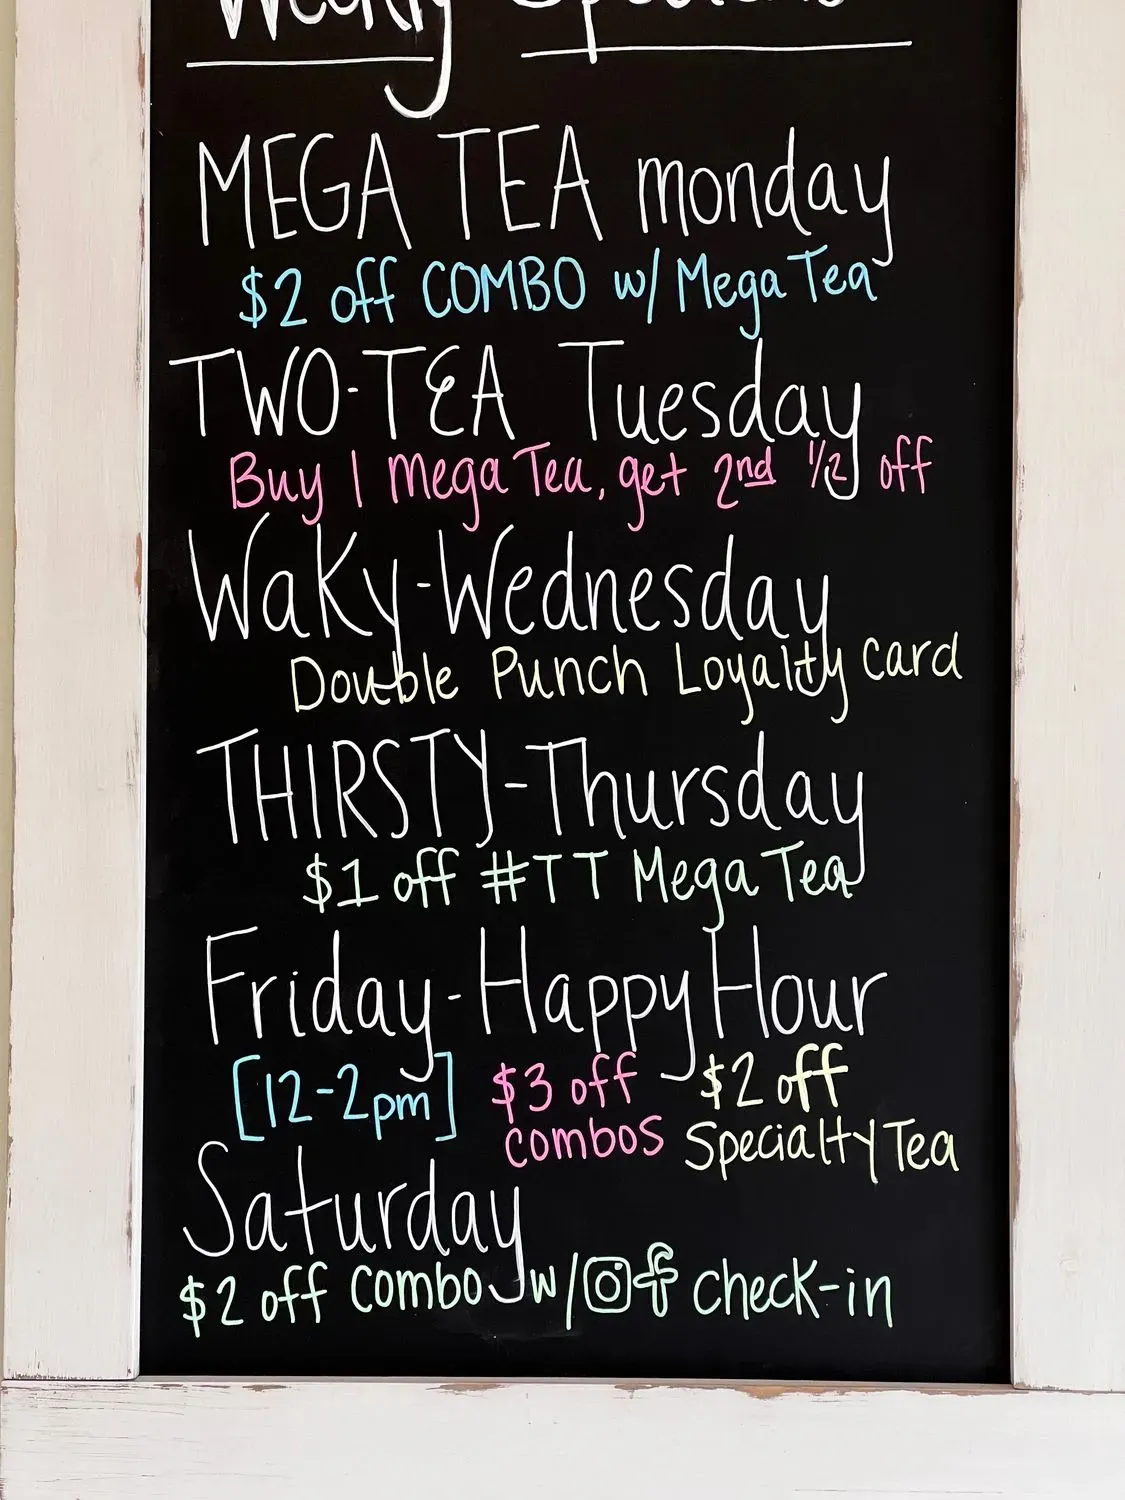 Weekly Specials
MEGA TEA monday
$2 off COMBO w/ Mega Tea
TWO-TEA Tuesday
Buy 1 Mega Tea, get 2nd 1/2 off
Waky-Wednesday
Double Punch Loyalty card
THIRSTY-Thursday
$1 off #TT Mega Tea
Friday-Happy Hour
[12-2pm] $3 off combos $2 off Specialty Tea
Saturday
$2 off Combo w/ check-in